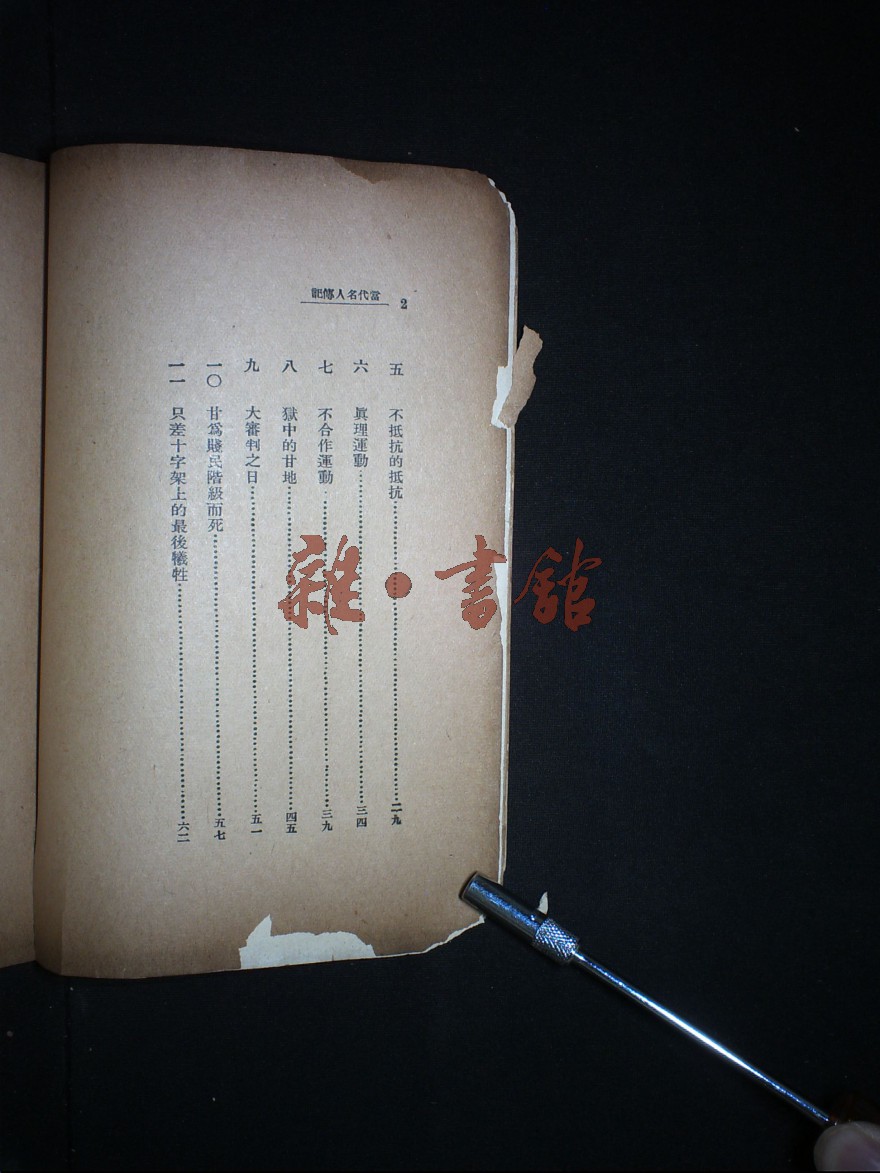 當代名人傳記
2
五 不抵抗的抵抗……二九
六 眞理運動……三四
七 不合作運動……三九
八 獄中的甘地……四五
九 大審判之日……五一
一〇 甘爲賤民階級而死……五七
一一 只差十字架上的最後犧牲……六二
雜·書館